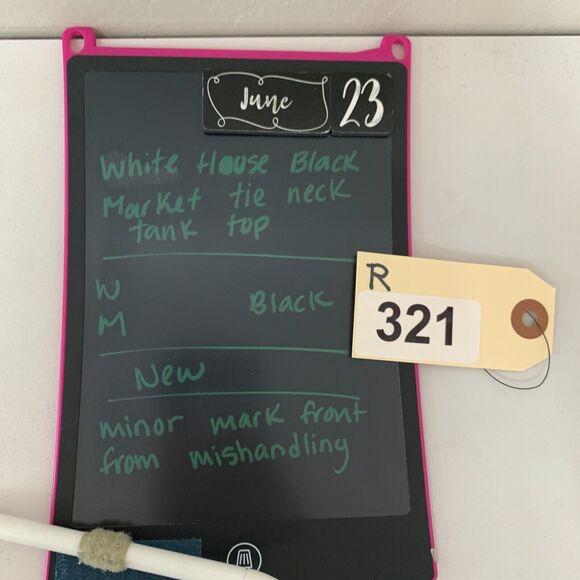 June 23
White House Black
Market tie neck
tank top
R
321
W
Black
M
New
minor mark front
from mishandling